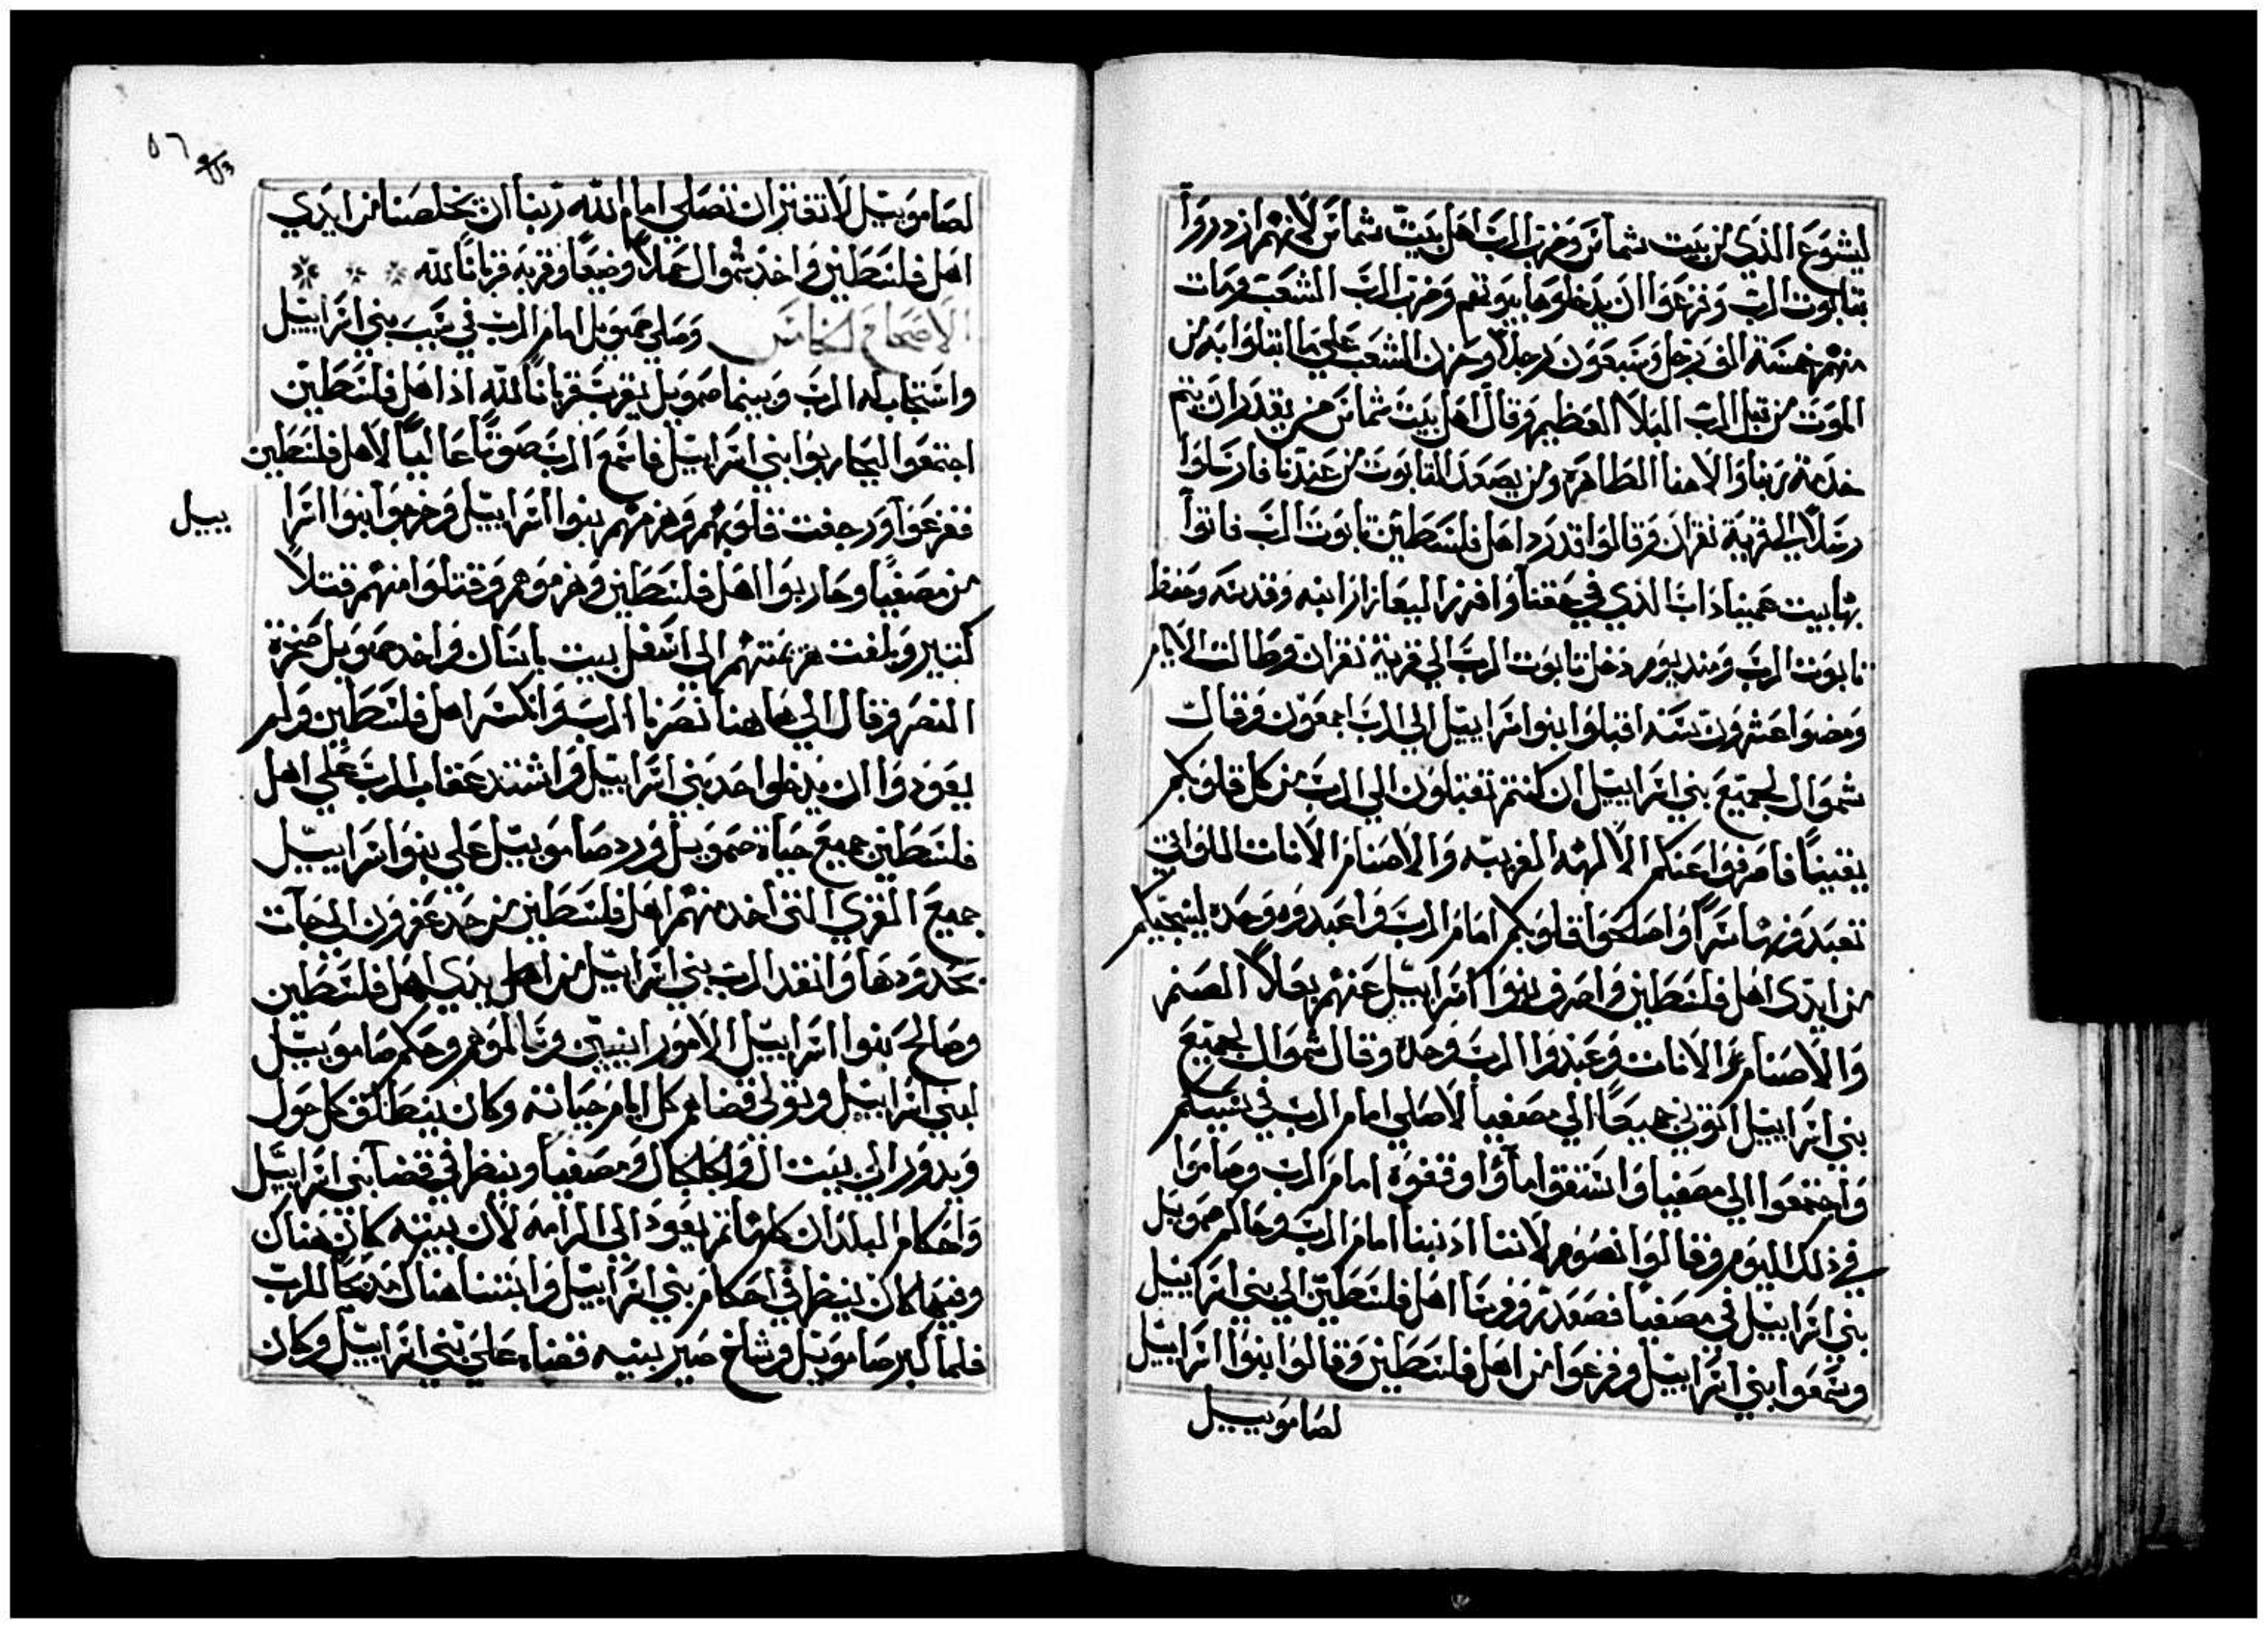 ليشوع الذي من بيت شماس وضرب الرب اهل بيت شماس لانهم ازدروا
بتابوت الرب وفزعوا ان يدخلوها بيوتهم وضرب الرب الشعب ومات
منهم خمسة الف رجل وسبعون رجلاً وحزن الشعب علي ما ابتلوا به من
الموت من قبل الرب البلا العظيم وقال اهل بيت شماس من يقدر ان يتم
خدمة ربنا والاهنا الطاهره ومن يصعد التابوت من عندنا فارسلوا
رسلاً الي قرية نعران وقالوا قد رد اهل فلسطين تابوت الرب فاتوا
بها بيت عميناداب الذي في جعتا وافرز اليعازار ابنه وقدسه وحفظ
تابوت الرب ومند يوم دخل تابوت الرب الي قرية نعران وطالت الايام
ومضوا عشرون سنه اقبلوا بنوا اسراييل الي الرب اجمعون وقال
شموال لجميع بني اسراييل ان كنتم تقبلون الي الرب من كل قلوبكم
يقيناً فاصرفوا عنكم الالهه الغريبه والاصنام الاناث اللواتي
تعبدونها سراً واصلحوا قلوبكم امام الرب واعبدوه وحده لينجيكم
من ايدي اهل فلسطين واصرف بنوا اسراييل عنهم بعلا الصنم
والاصنام الاناث وعبدوا الرب وحده وقال شموال لجميع
بني اسراييل اتوني جميعاً الي مصفيا لاصلي امام الرب في سببكم
واجتمعوا الي مصفيا واستقوا مآوا وقفوه امام الرب وصاموا
في ذلك اليوم وقالوا نصوم لاننا ادنبنا امام الرب وحاكم صمويل
بني اسراييل في مصفيا فصعد روورسا اهل فلسطين الي بني اسراييل
وسمعوا بني اسراييل وفزعوا من اهل فلسطين وقالوا بنوا اسراييل
لصامويييل
٥٦
لصامويل لا تفتر ان تصلي امام الله ربنا ان يخلصنا من ايدي
اهل فلسطين واخذ شموال حملاً وضيعاً وقربه قرباناً لله
الاصحاح الخامس وصلي صمويل امام الرب في سبب بني اسراييل
واستجاب له الرب وبينما صمويل يقرب قرباناً لله اذا اهل فلسطين
اجتمعوا اليحاربوا بني اسراييل فاسمع الرب صوتاً عالياً لاهل فلسطين
ففزعوا ورجفت قلوبهم وهزمهم بنوا اسراييل وخرجوا بنوا اسرا
ييل
من مصفيا وحاربوا اهل فلسطين وهزموهم وقتلوا منهم قتلاً
كتير وبلغت هزيمتهم الي اسفل بيت ياسان واخد صمويل صخرة
النصر وقال الي هاهنا نصرنا الرب وانكسر اهل فلسطين ولم
يعودوا ان يدخلوا حد بني اسراييل واشتد عقاب الرب علي اهل
فلسطين جميع حياة صمويل ورد صامويل علي بنوا اسراييل
جميع القري التي اخد منهم اهل فلسطين من حد عفرون الي جآت
بحدودها وانقد الرب بني اسراييل من اهل يدي اهل فلسطين
وصالح بنوا اسراييل الامورانيين وسالموهم وحكم صامويل
لبني اسراييل وتولي قضاهم كل ايام حياته وكان ينطلق كل حول
ويدور الي بيت ال والجلجال ومصفيا وينظر في قضا بني اسراييل
واحكام البلدان كلها تم يعود الي الرامه لان بيته كان هناك
وفيها كان ينظر في احكام بني اسراييل وابتنا هناك مدبحاً للرب
فلما كبر صامويل وشاخ صير بنيه قضاه علي بني اسراييل وكان